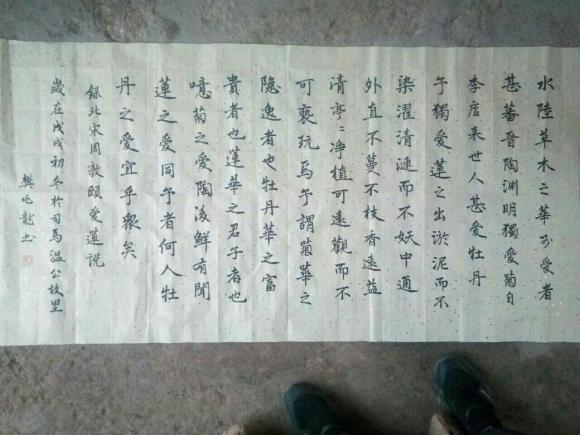 水陸草木之華可愛者
甚蕃晉陶渊明獨愛菊自
李唐来世人甚愛牡丹
予獨愛蓮之出淤泥而不
染濯清漣而不妖中通
外直不蔓不枝香遠益
清亭〻净植可遠觀而不
可亵玩焉予謂菊華之
隐逸者也牡丹華之富
貴者也蓮華之君子者也
噫菊之愛陶後鮮有聞
蓮之愛同予者何人牡
丹之愛宜乎衆矣
録北宋周敦頤愛蓮説
歲在戊戌初冬於司馬溫公故里
樊兆龍书